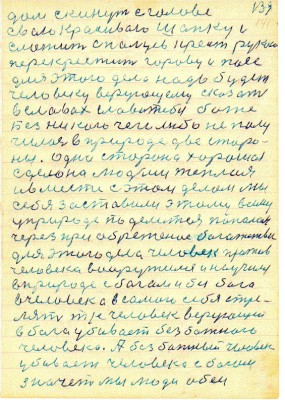 139
дом скинут с голове
свою красивою шапку и
сложит с палцев крест рукою
перекрестит горову и пося
для этого дела надо будет
человику верующему сказать
в словах слова тиби боже
без никого чего либо не полу
чился в природе две сторо
ны. Одна сторона хорошая
сделона людми теплая
и вмисти с этом делом мы
себя заставили этому всему
у природе поделится пополам
через приобретение багажства
для этого дела человек против
человека вооружился и научилу
в природе с богам и би бога
в человека а самои себя стре
лят тже человек верующий
в бога убивает безбожного
человека. А безбожный человек
убивает человека с богом
значет мы люди обеи